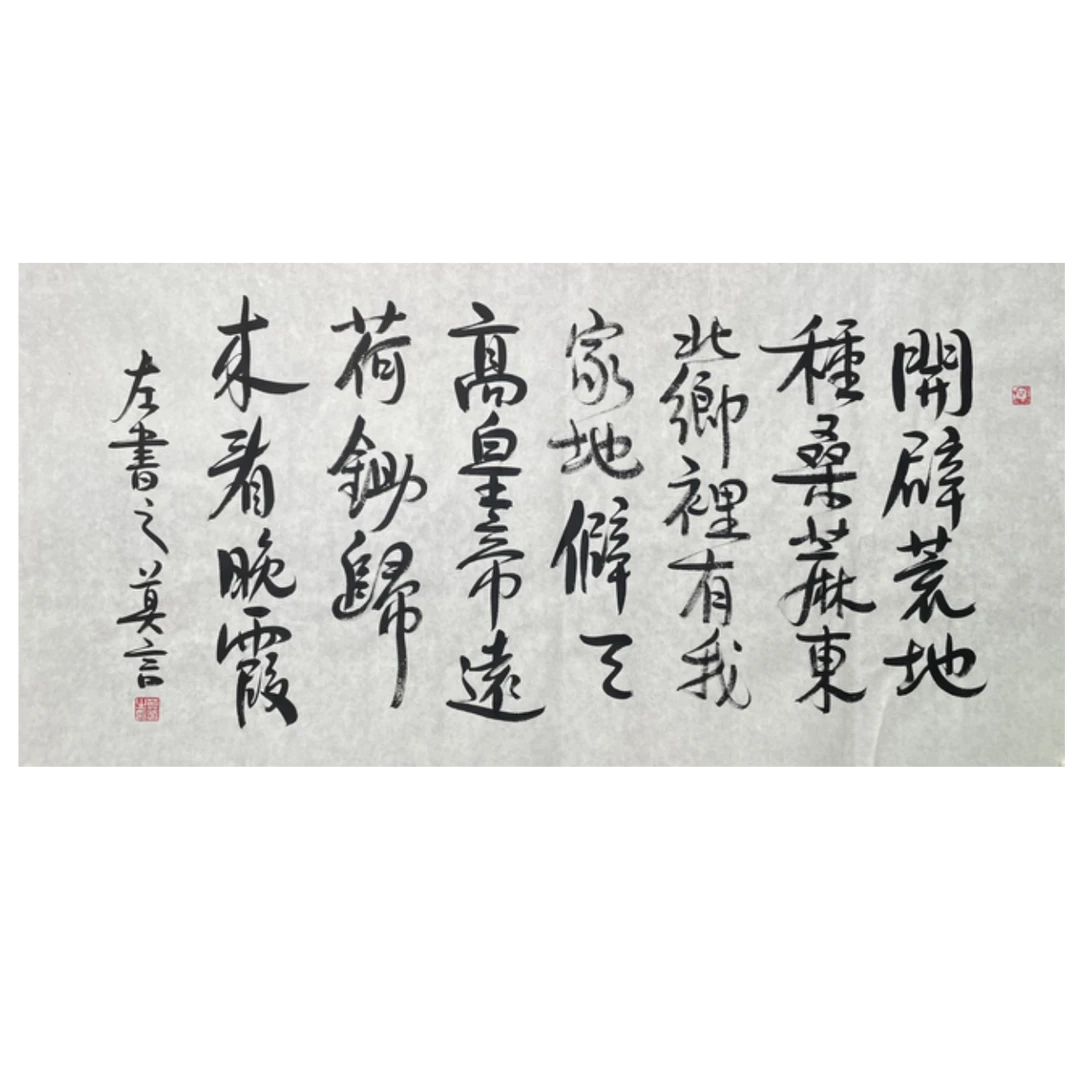 開辟荒地
種桑芝麻東
北鄉裡有我
家地僻天
高皇帝遠
荷鋤歸
來看晚霞
左書之莫言